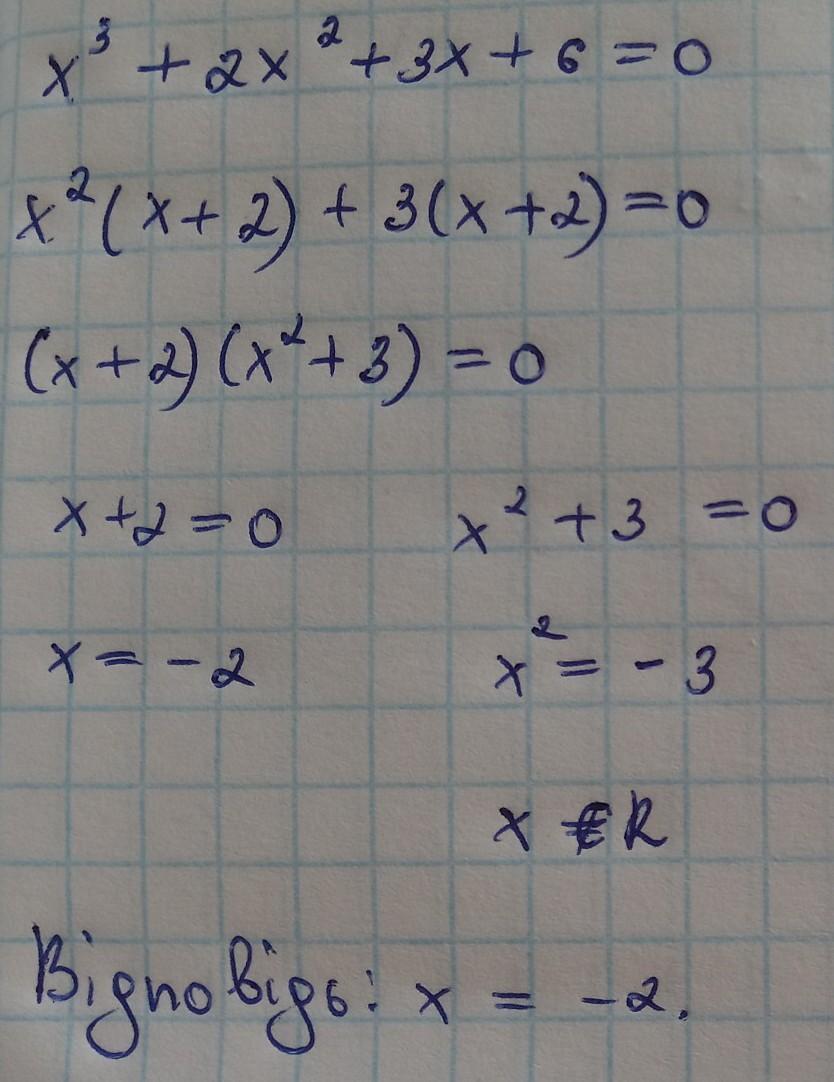 x³ + 2x² + 3x + 6 = 0
x²(x + 2) + 3(x + 2) = 0
(x + 2)(x² + 3) = 0
x + 2 = 0 x² + 3 = 0
x = -2 x² = -3
x ∉ R
Відповідь: x = -2.